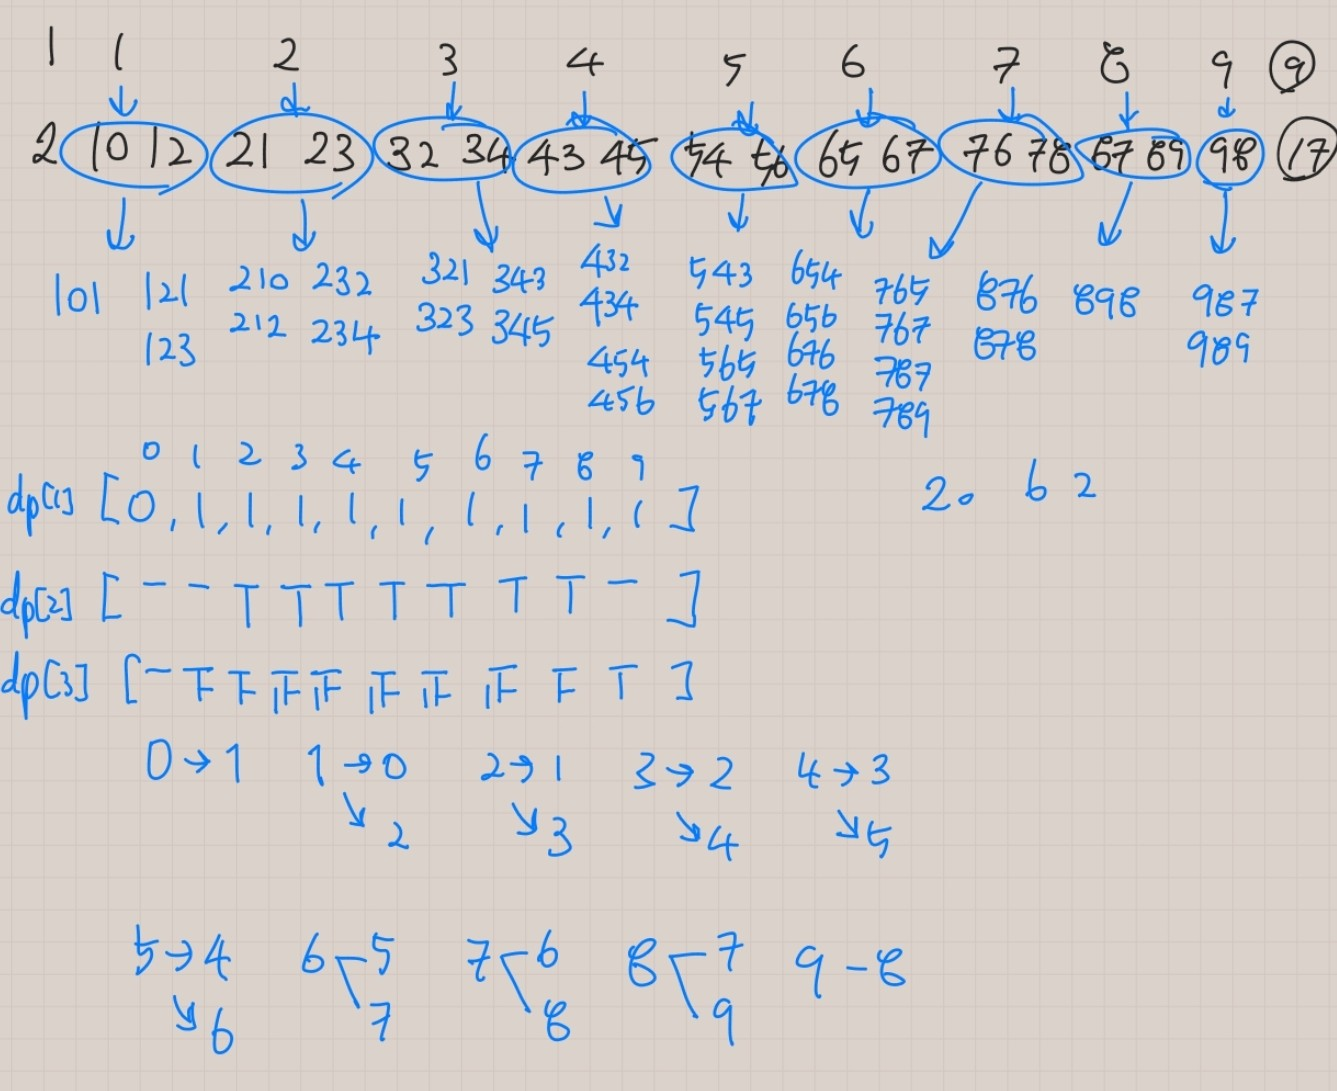 1 1 2 3 4 5 6 7 8 9 ⑨
2 10 12 21 23 32 34 43 45 54 56 65 67 76 78 87 89 98 ⑰
101 121 210 232 321 343 432 543 654 765 876 898 987
123 212 234 323 345 434 545 656 767 878 989
454 565 676 787
456 567 678 789
0 1 2 3 4 5 6 7 8 9
dp[1] [0, 1, 1, 1, 1, 1, 1, 1, 1, 1 ]
2. 6 2
dp[2] [ ]
dp[3] [ ]
0→1 1→0 2→1 3→2 4→3
↘2 ↘3 ↘4 ↘5
5→4 6 5 7 6 8 7 9-8
↘6 7 8 9